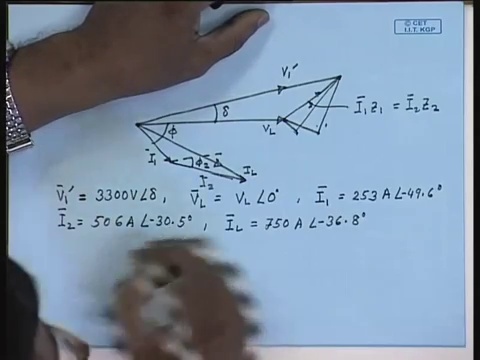 © CET
I.I.T. KGP
V̄₁′
δ
V_L
Ī₁Z₁ = Ī₂Z₂
Ī₁
ϕ
ϕ₂
I₂
I_L
V̄₁′ = 3300V∠δ, V̄_L = V_L∠0°, Ī₁ = 253A∠-49.6°
Ī₂ = 506A∠-30.5°, Ī_L = 750A∠-36.8°